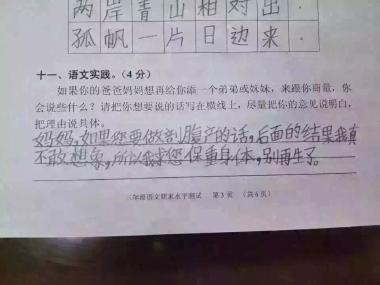 两岸青山相对出.
孤帆一片日边来.
十一、语文实践。(4分)
如果你的爸爸妈妈想再给你添一个弟弟或妹妹，来跟你商量，你
会说些什么？请把你想要说的话写在横线上，尽量把你的意见说明白，
把理由说具体。
妈妈，如果您要做剖腹产的话，后面的结果我真
不敢想象，所以我求您保重身体，别再生了。
三年级语文期末水平测试 第5页 (共6页)